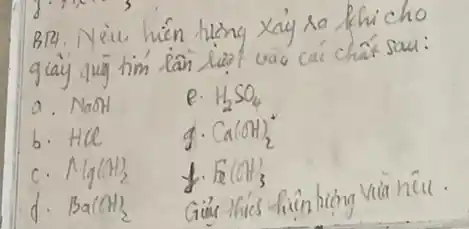 BT4. Nêu hiện tượng xảy ra khi cho
giấy quỳ tím lần lượt vào các chất sau:
a. NaOH e. H₂SO₄
b. HCl g. Ca(OH)₂
c. Mg(OH)₂ f. Fe(OH)₃
d. Ba(OH)₂ Giải thích hiện tượng vừa nêu.